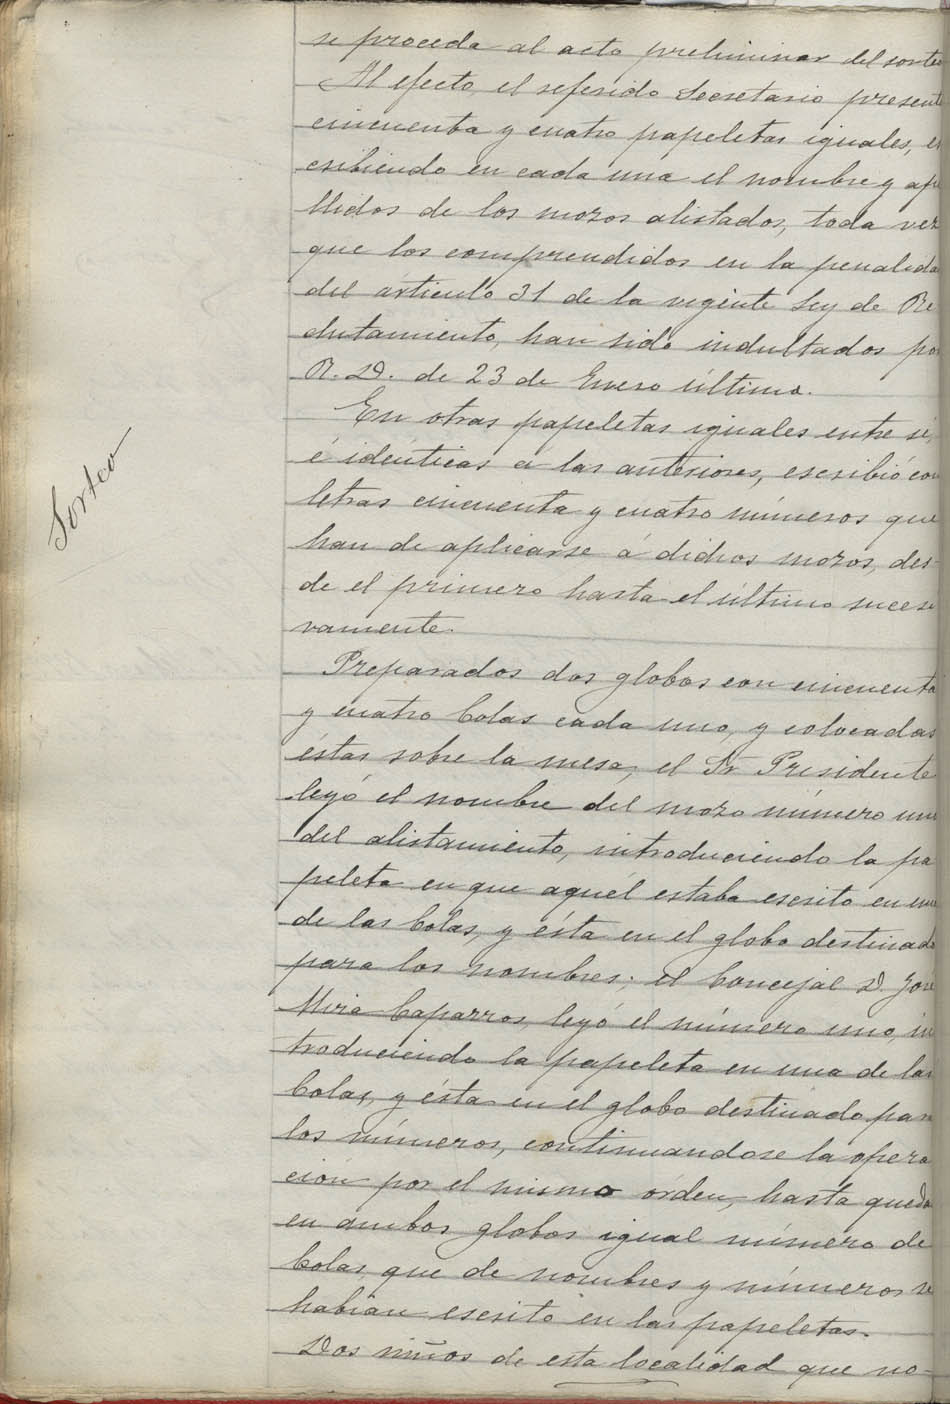 se proceda al acto preliminar del sorteo
Al efecto, el referido Secretario presentó
cincuenta y cuatro papeletas iguales, es
cribiendo en cada una el nombre y ape
llidos de los mozos alistados, toda vez
que los comprendidos en la penalidad
del artículo 31 de la vigente Ley de Re
clutamiento, han sido indultados por
R. D. de 23 de Enero último.
En otras papeletas iguales entre sí,
é idénticas á las anteriores, escribió con
letras cincuenta y cuatro números que
han de aplicarse á dichos mozos, des-
de el primero hasta el último sucesi
vamente.
Sorteo
Preparados dos globos con cincuenta
y cuatro bolas cada uno, y colocadas
éstas sobre la mesa, el Sr. Presidente
leyó el nombre del mozo número uno
del alistamiento, introduciendo la pa
peleta en que aquél estaba escrito en una
de las bolas, y ésta en el globo destinado
para los nombres; el Concejal D. José
Mira Caparros, leyó el número uno, in
troduciendo la papeleta en una de las
bolas, y ésta en el globo destinado para
los números, continuandose la opera
ción por el mismo orden, hasta quedar
en ambos globos igual número de
bolas, que de nombres y números se
habían escrito en las papeletas.
Dos niños de esta localidad que no-